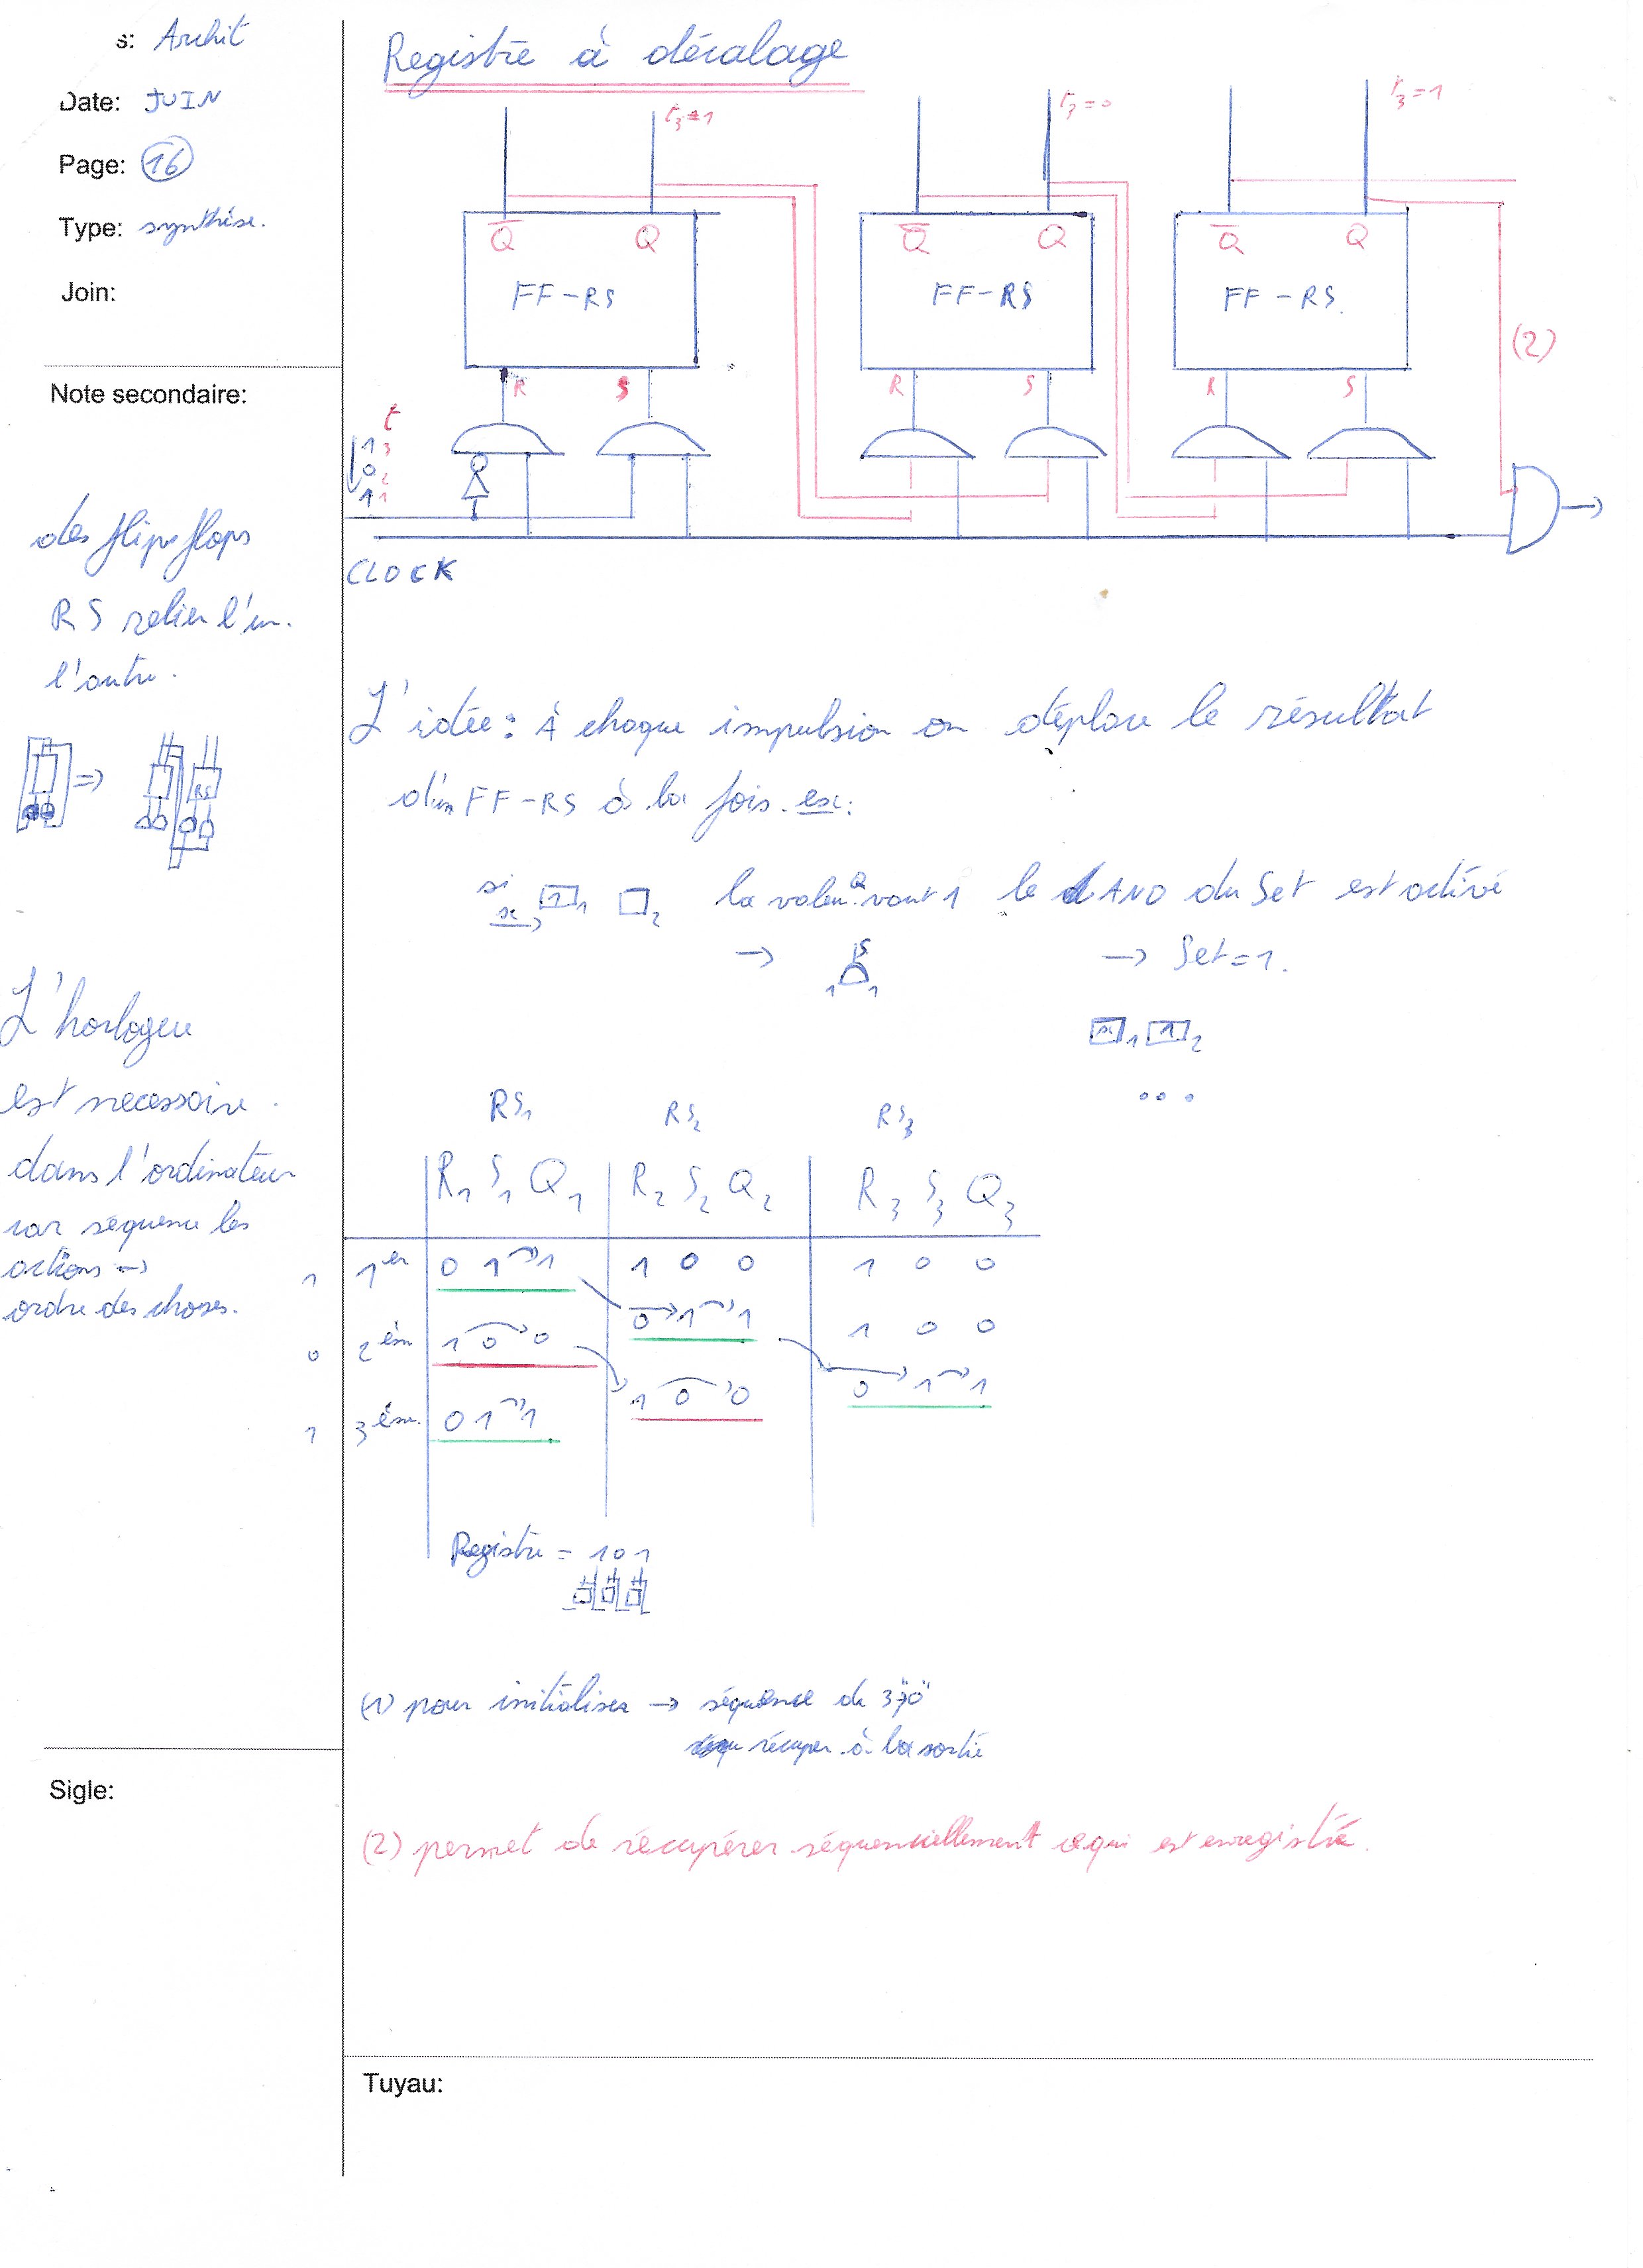 s: Archit
Date: JUIN
Page: 16
Type: synthèse.
Join:
Note secondaire:
des flips flops
RS relier l'un.
l'autre.
RS
L'horlogeu
est necessaire.
dans l'ordinateur
car séquence les
actions →
ordre des choses.
Sigle:
Registre à décalage
t3=1
t3=0
t3=1
Q̅ Q
Q̅ Q
Q̅ Q
FF-RS
FF-RS
FF-RS.
(2)
R S
R S
R S
t
1 3
0 2
1 1
CLOCK
L'idée: À chaque impulsion on déplace le résultat
d'un FF-RS à la fois. ex:
si 1 1 2 la valeur Q vaut 1 le AND du Set est activé
→ S 1 1 → Set=1.
1 1 2
...
RS1 RS2 RS3
R1 S1 Q1 R2 S2 Q2 R3 S3 Q3
1 1er 0 1 1 1 0 0 1 0 0
0 1 1 1 0 0
0 2èm 1 0 0
1 0 0 0 1 1
1 3èm. 0 1 1
Registre = 101
(1) pour initialiser → séquence de 3 "0"
récuper. à la sortie
(2) permet de récupérer séquentiellement ce qui est enregistré.
Tuyau: